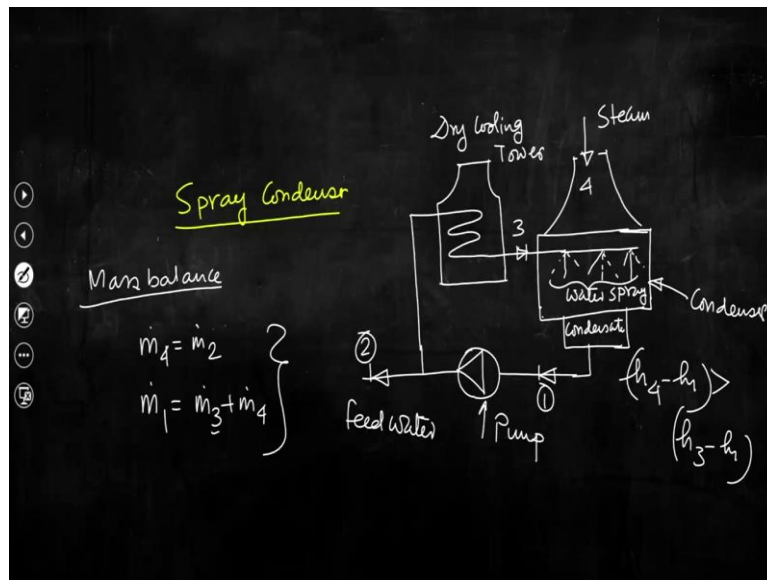 Spray Condenser
Mass balance
ṁ4 = ṁ2
ṁ1 = ṁ3 + ṁ4
Dry Cooling
Tower
Steam
4
3
water spray
Condenser
Condensate
②
①
feed water
Pump
(h4 - h1) >
(h3 - h1)